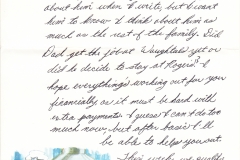 about him when I write, but I want
him to know I think about him as
much as the rest of the family. Did
Dad get the job at Vaughtal's yet or
did he decide to stay at Rogers? I
hope everything's working out for you
financially as it must be hard with
extra payments. I guess I can't do too
much now, but after basic I'll
be able to help you out.
This week we